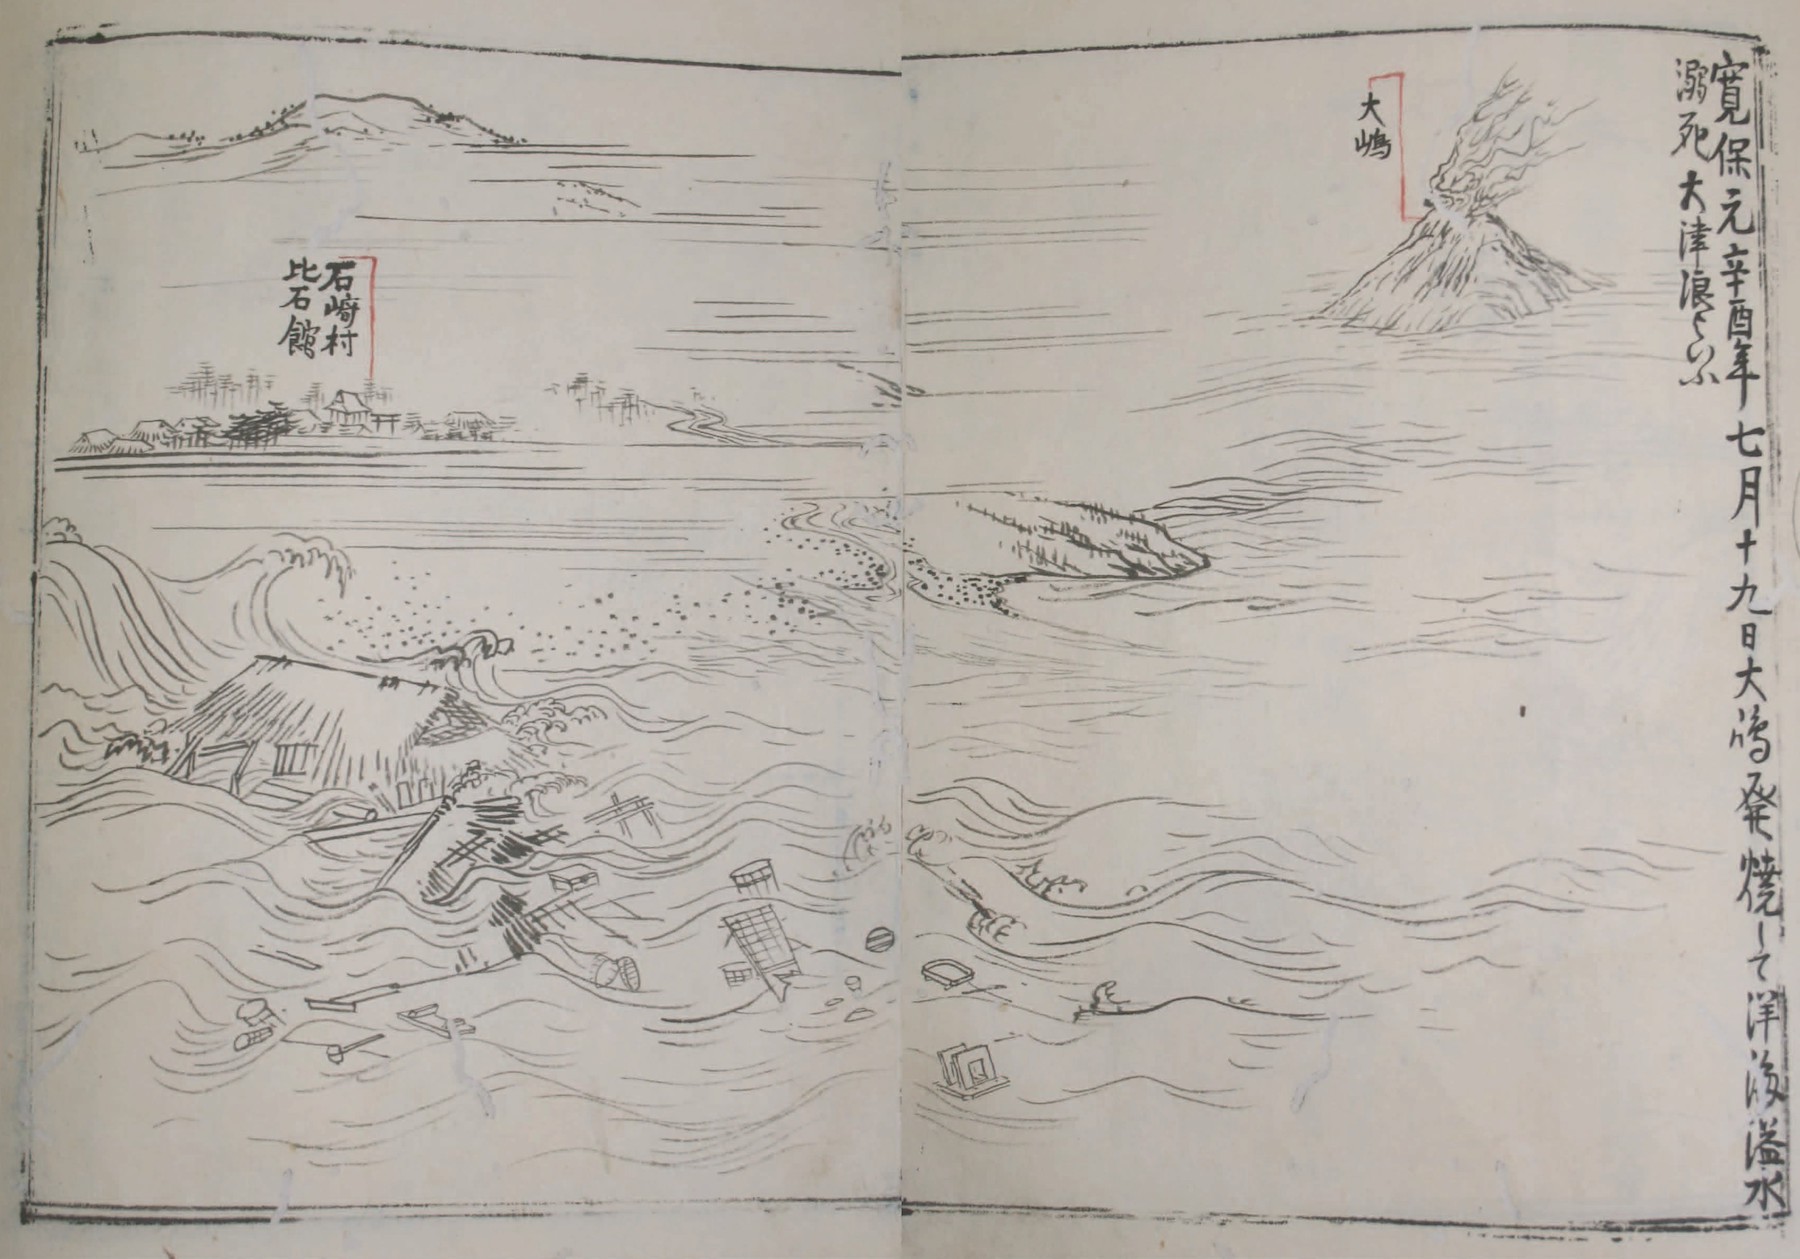 寛保元辛酉年七月十九日大嶋発焼して洋海溢水
溺死大津浪といふ
大嶋
石崎村
比石館